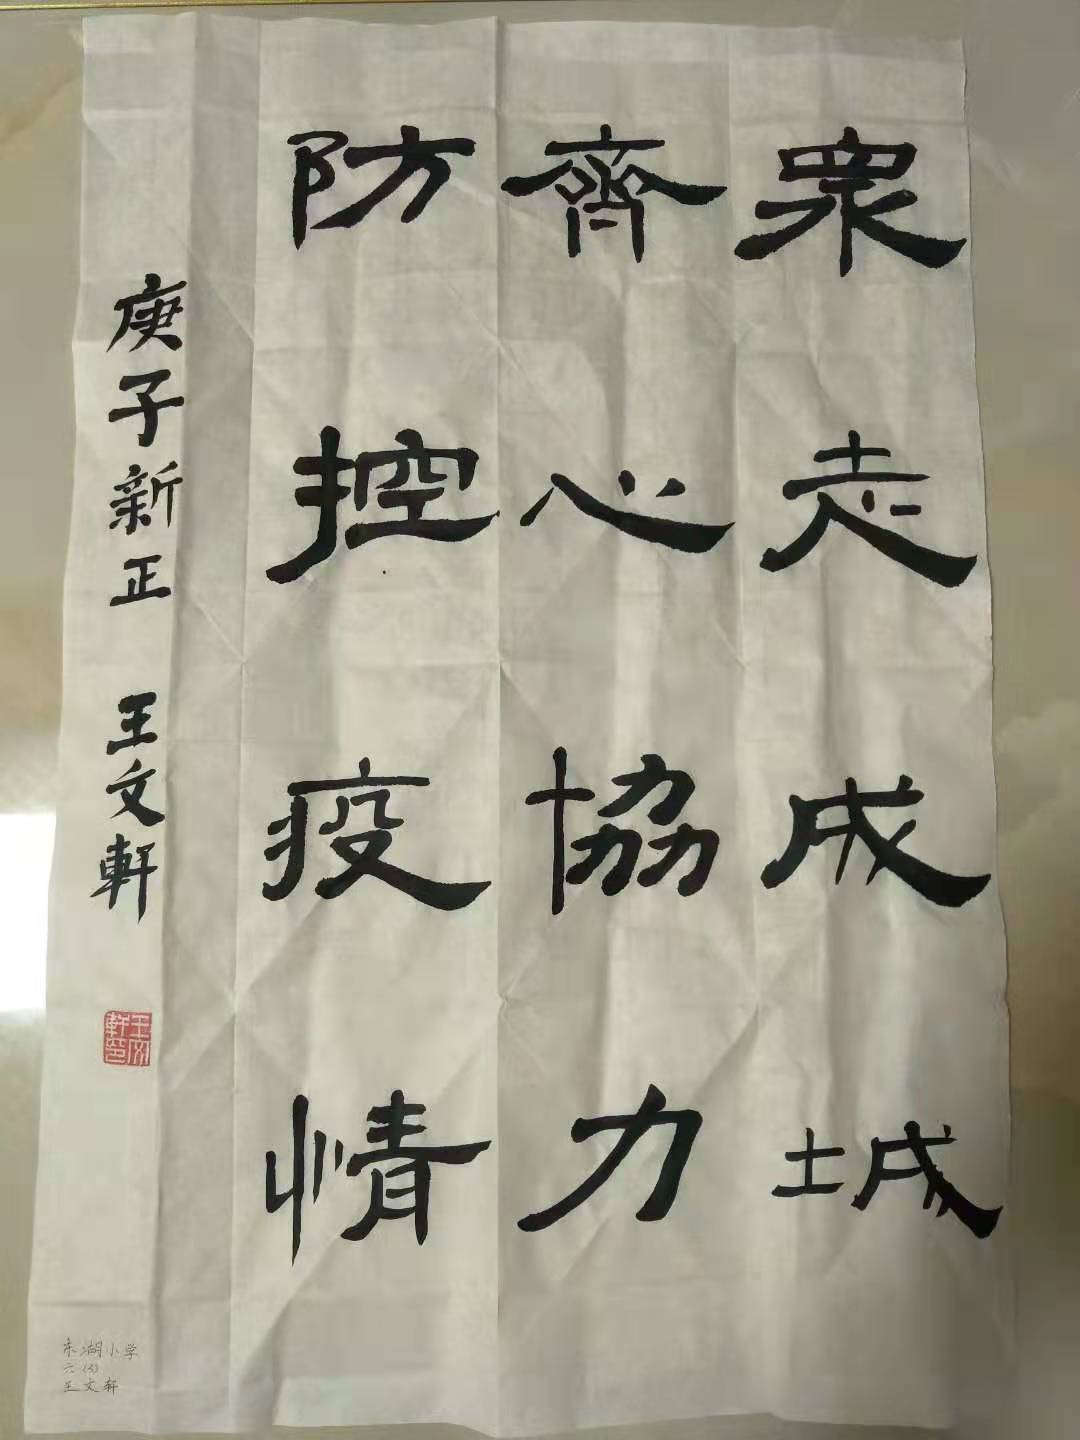 眾志成城
齊心協力
防控疫情
庚子新正 王文軒
王文軒印
湖小学
六
王文轩